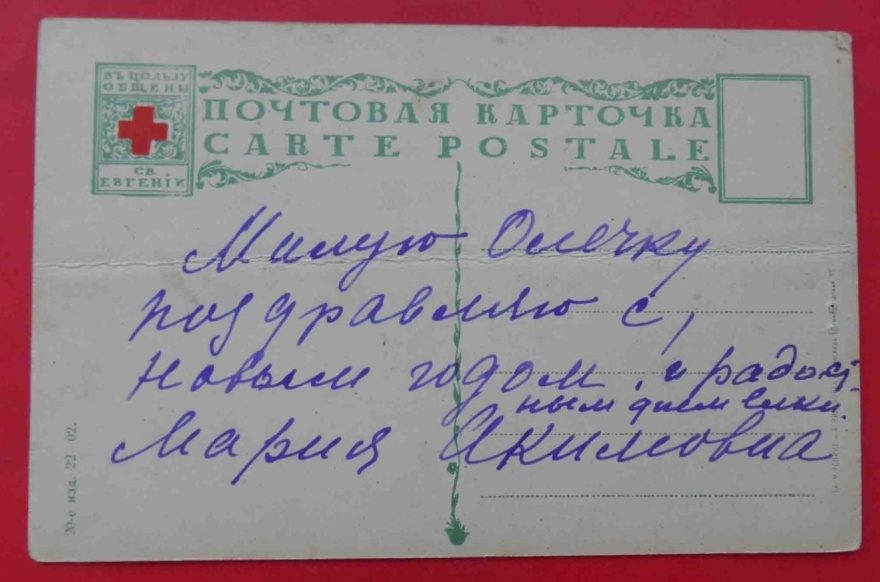 ВЪ ПОЛЬЗУ
ОБЩИНЫ
СВ.
ЕВГЕНІИ
ПОЧТОВАЯ КАРТОЧКА
CARTE POSTALE
Милую Олечку
поздравляю с,
Новым годом, и радост-
ным днем елки.
Мария Акимовна
20-е изд. 22 02.